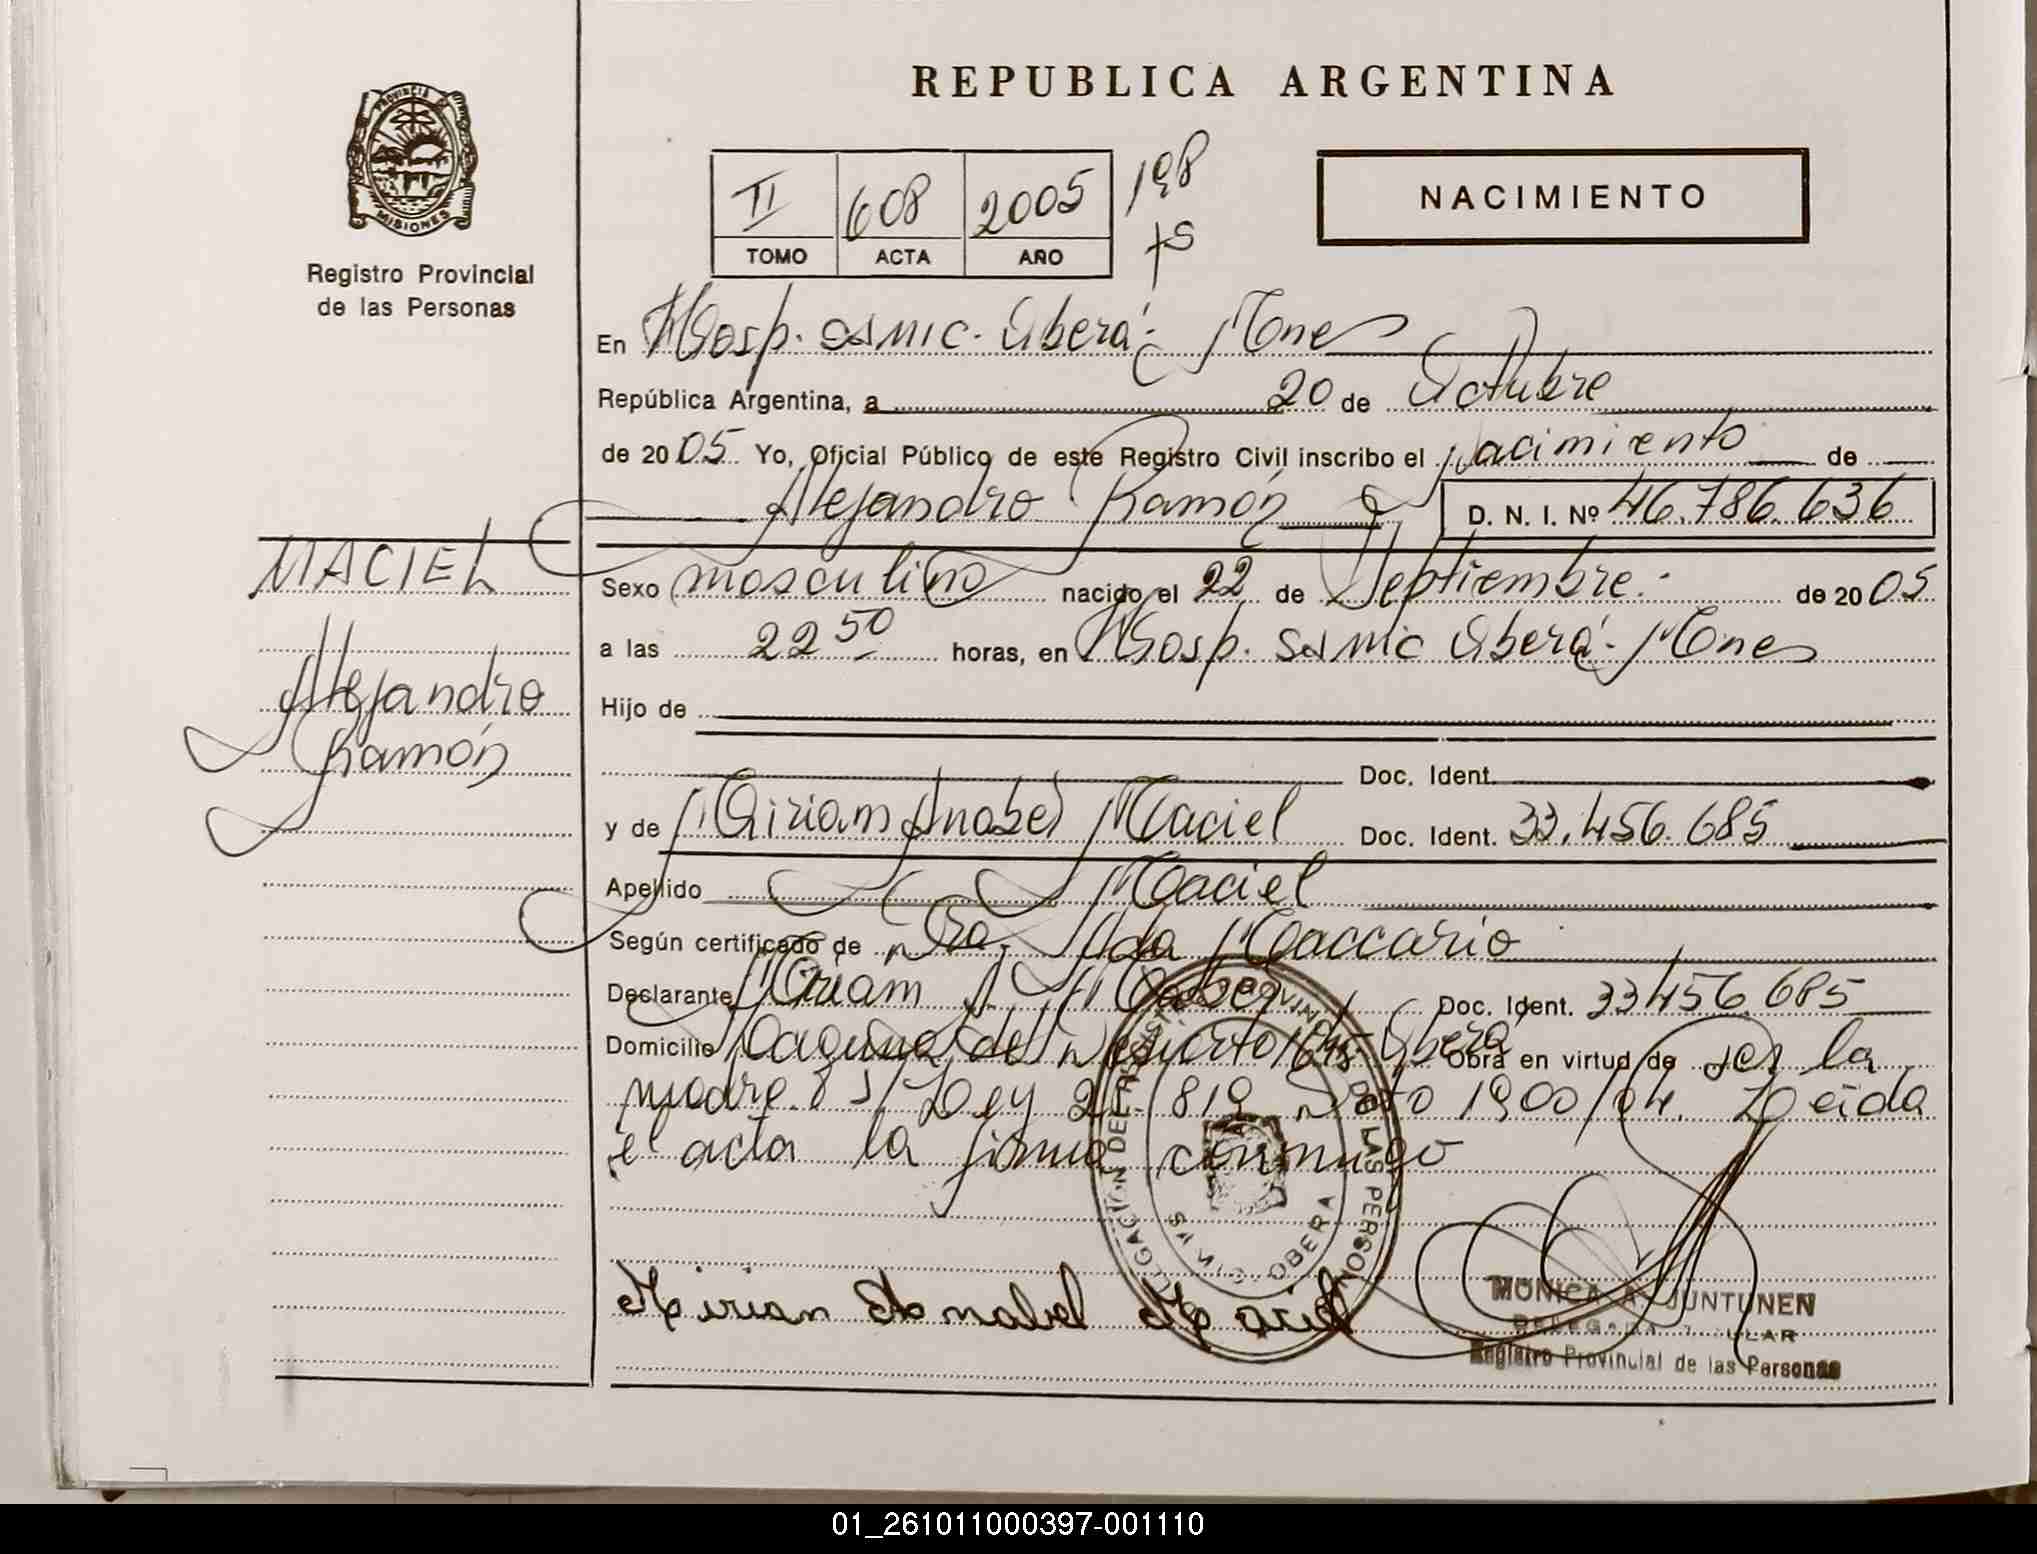 REPUBLICA ARGENTINA
PROVINCIA DE
MISIONES
Registro Provincial
de las Personas
II 608 2005 198
TOMO ACTA AÑO
NACIMIENTO
En Hosp. SAMIC. Oberá - Mnes
República Argentina, a 20 de Octubre
de 2005 Yo, Oficial Público de este Registro Civil inscribo el Nacimiento de
Alejandro Ramón D. N. I. Nº 46.786.636
MACIEL
Alejandro
Ramón
Sexo masculino nacido el 22 de Septiembre. de 2005
a las 22 50 horas, en Hosp. SAMIC Oberá - Mnes
Hijo de
Doc. Ident.
y de Miriam Anabel Maciel Doc. Ident. 33.456.685
Apellido Maciel
Según certificado de Dra. Ilda Maccario
Declarante Miriam A. Doc. Ident. 33456.685
Domicilio Laguna del Desierto Oberá Obra en virtud de ser la
madre. Ley 25.819 Dto 1900/04. Leída
el acta la firma conmigo
Miriam Anabel Maciel
DELEGACION DEL REGISTRO PROVINCIAL DE LAS PERSONAS
OBERA
MONICA A. JUNTUNEN
DELEGADA TITULAR
Registro Provincial de las Personas
01_261011000397-001110